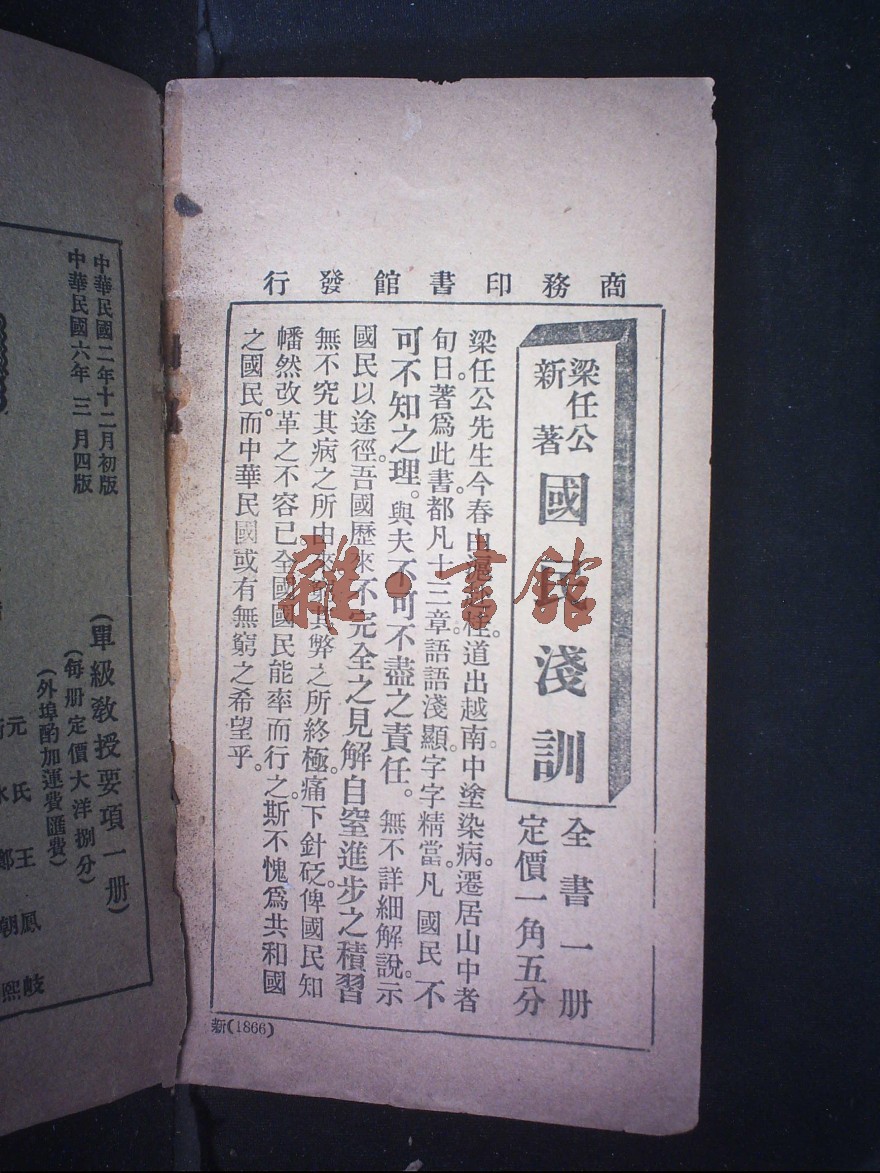 商務印書館發行
梁任公
新著
國民淺訓
全書一册
定價一角五分
梁任公先生今春由滬桂。道出越南。中塗染病。遷居山中者
旬日。著爲此書。都凡十三章。語語淺顯。字字精當。凡 國民不
可不知之理。與夫不可不盡之責任。無不詳細解說。示
國民以途徑。吾國歷來不完全之見解自窒進步之積習
無不究其病之所由來其弊之所終極。痛下針砭。俾國民知
幡然改革之不容已。全國國民能率而行之。斯不愧爲共和國
之國民。而中華民國或有無窮之希望乎。
新(1866)
中華民國二年十二月初版
中華民國六年三月四版
(單級教授要項一册)
(每册定價大洋捌分)
(外埠酌加運費匯費)
元氏王鳳岐
水鄭朝熙
雜·書館